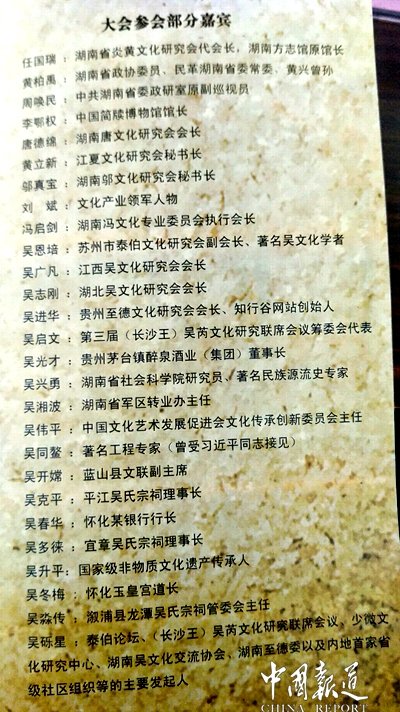 大会参会部分嘉宾
任国瑞：湖南省炎黄文化研究会代会长，湖南方志馆原馆长
黄柏禹：湖南省政协委员、民革湖南省委常委、黄兴曾孙
周唤民：中共湖南省委政研室原副巡视员
李鄂权：中国简牍博物馆馆长
唐德绵：湖南唐文化研究会会长
黄立新：江夏文化研究会秘书长
邬真宝：湖南邬文化研究会秘书长
刘　斌：文化产业领军人物
冯启剑：湖南冯文化专业委员会执行会长
吴恩培：苏州市泰伯文化研究会副会长、著名吴文化学者
吴广凡：江西吴文化研究会会长
吴志刚：湖北吴文化研究会会长
吴进华：贵州至德文化研究会会长、知行谷网站创始人
吴启文：第三届（长沙王）吴芮文化研究联席会议筹委会代表
吴光才：贵州茅台镇醉泉酒业（集团）董事长
吴兴勇：湖南省社会科学院研究员、著名民族源流史专家
吴湘波：湖南省军区转业办主任
吴伟平：中国文化艺术发展促进会文化传承创新委员会主任
吴同鳌：著名工程专家（曾受习近平同志接见）
吴开嫦：蓝山县文联副主席
吴克平：平江吴氏宗祠理事长
吴春华：怀化某银行行长
吴多徕：宜章吴氏宗祠理事长
吴升平：国家级非物质文化遗产传承人
吴冬梅：怀化玉皇宫道长
吴淼传：溆浦县龙潭吴氏宗祠管委会主任
吴砾星：泰伯论坛、（长沙王）吴芮文化研究联席会议、少微文
化研究中心、湖南吴文化交流协会、湖南至德委以及内地首家省
级社区组织等的主要发起人
中国报道
CHINA REPORT